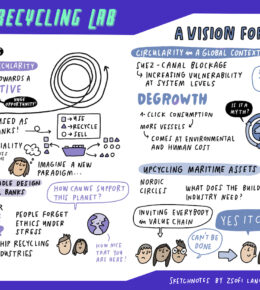 RECYCLING LAB
A VISION FO
CIRCULARITY
TOWARDS A
TIVE
HUGE OPPORTUNITY
ASED AS
NKS!
IALITY
→ USE
→ RECYCLE
→ SELL
IMAGINE A NEW
PARADIGM...
DESIGN
BANKS
HOW CAN WE SUPPORT
THIS PLANET?
PEOPLE FORGET
ETHICS UNDER
STRESS
HIP RECYCLING
DUSTRIES
HOW NICE
THAT YOU
ARE HERE!
CIRCULARITY IN A GLOBAL CONTEXT
SUEZ-CANAL BLOCKAGE
INCREASING VULNERABILITY
AT SYSTEM LEVELS
DEGROWTH
1 CLICK CONSUMPTION
IS IT A
MYTH?
MORE VESSELS
COMES AT ENVIRONMENTAL
AND HUMAN COST
UPCYCLING MARITIME ASSETS
NORDIC
CIRCLES
WHAT DOES THE BUILD
INDUSTRY NEED?
INVITING EVERYBODY
IN VALUE CHAIN
CAN'T BE
DONE
YES IT C
SKETCHNOTES BY ZSOFI LAN